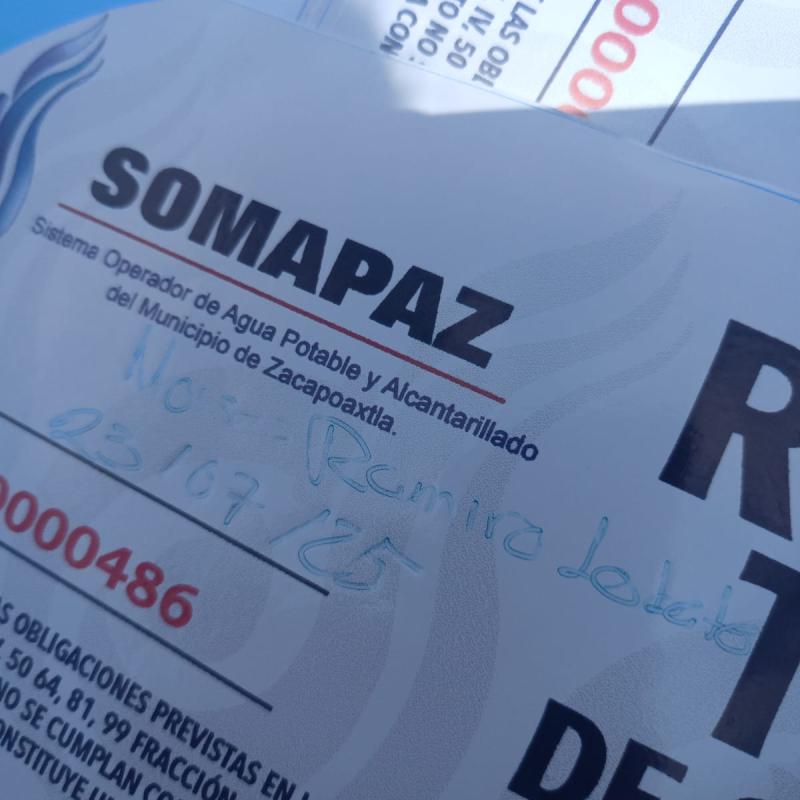 LAS OBL
IV, 50
TO NO
CON
000
SOMAPAZ
Sistema Operador de Agua Potable y Alcantarillado
del Municipio de Zacapoaxtla.
Ramiro
23/07/25
0000486
R
T
DE
OBLIGACIONES PREVISTAS EN
50 64, 81, 99 FRACCIÓN
NO SE CUMPLAN